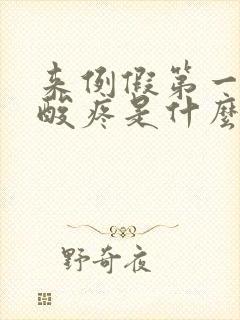 来例假第一
酸疼是什麼
野奇夜